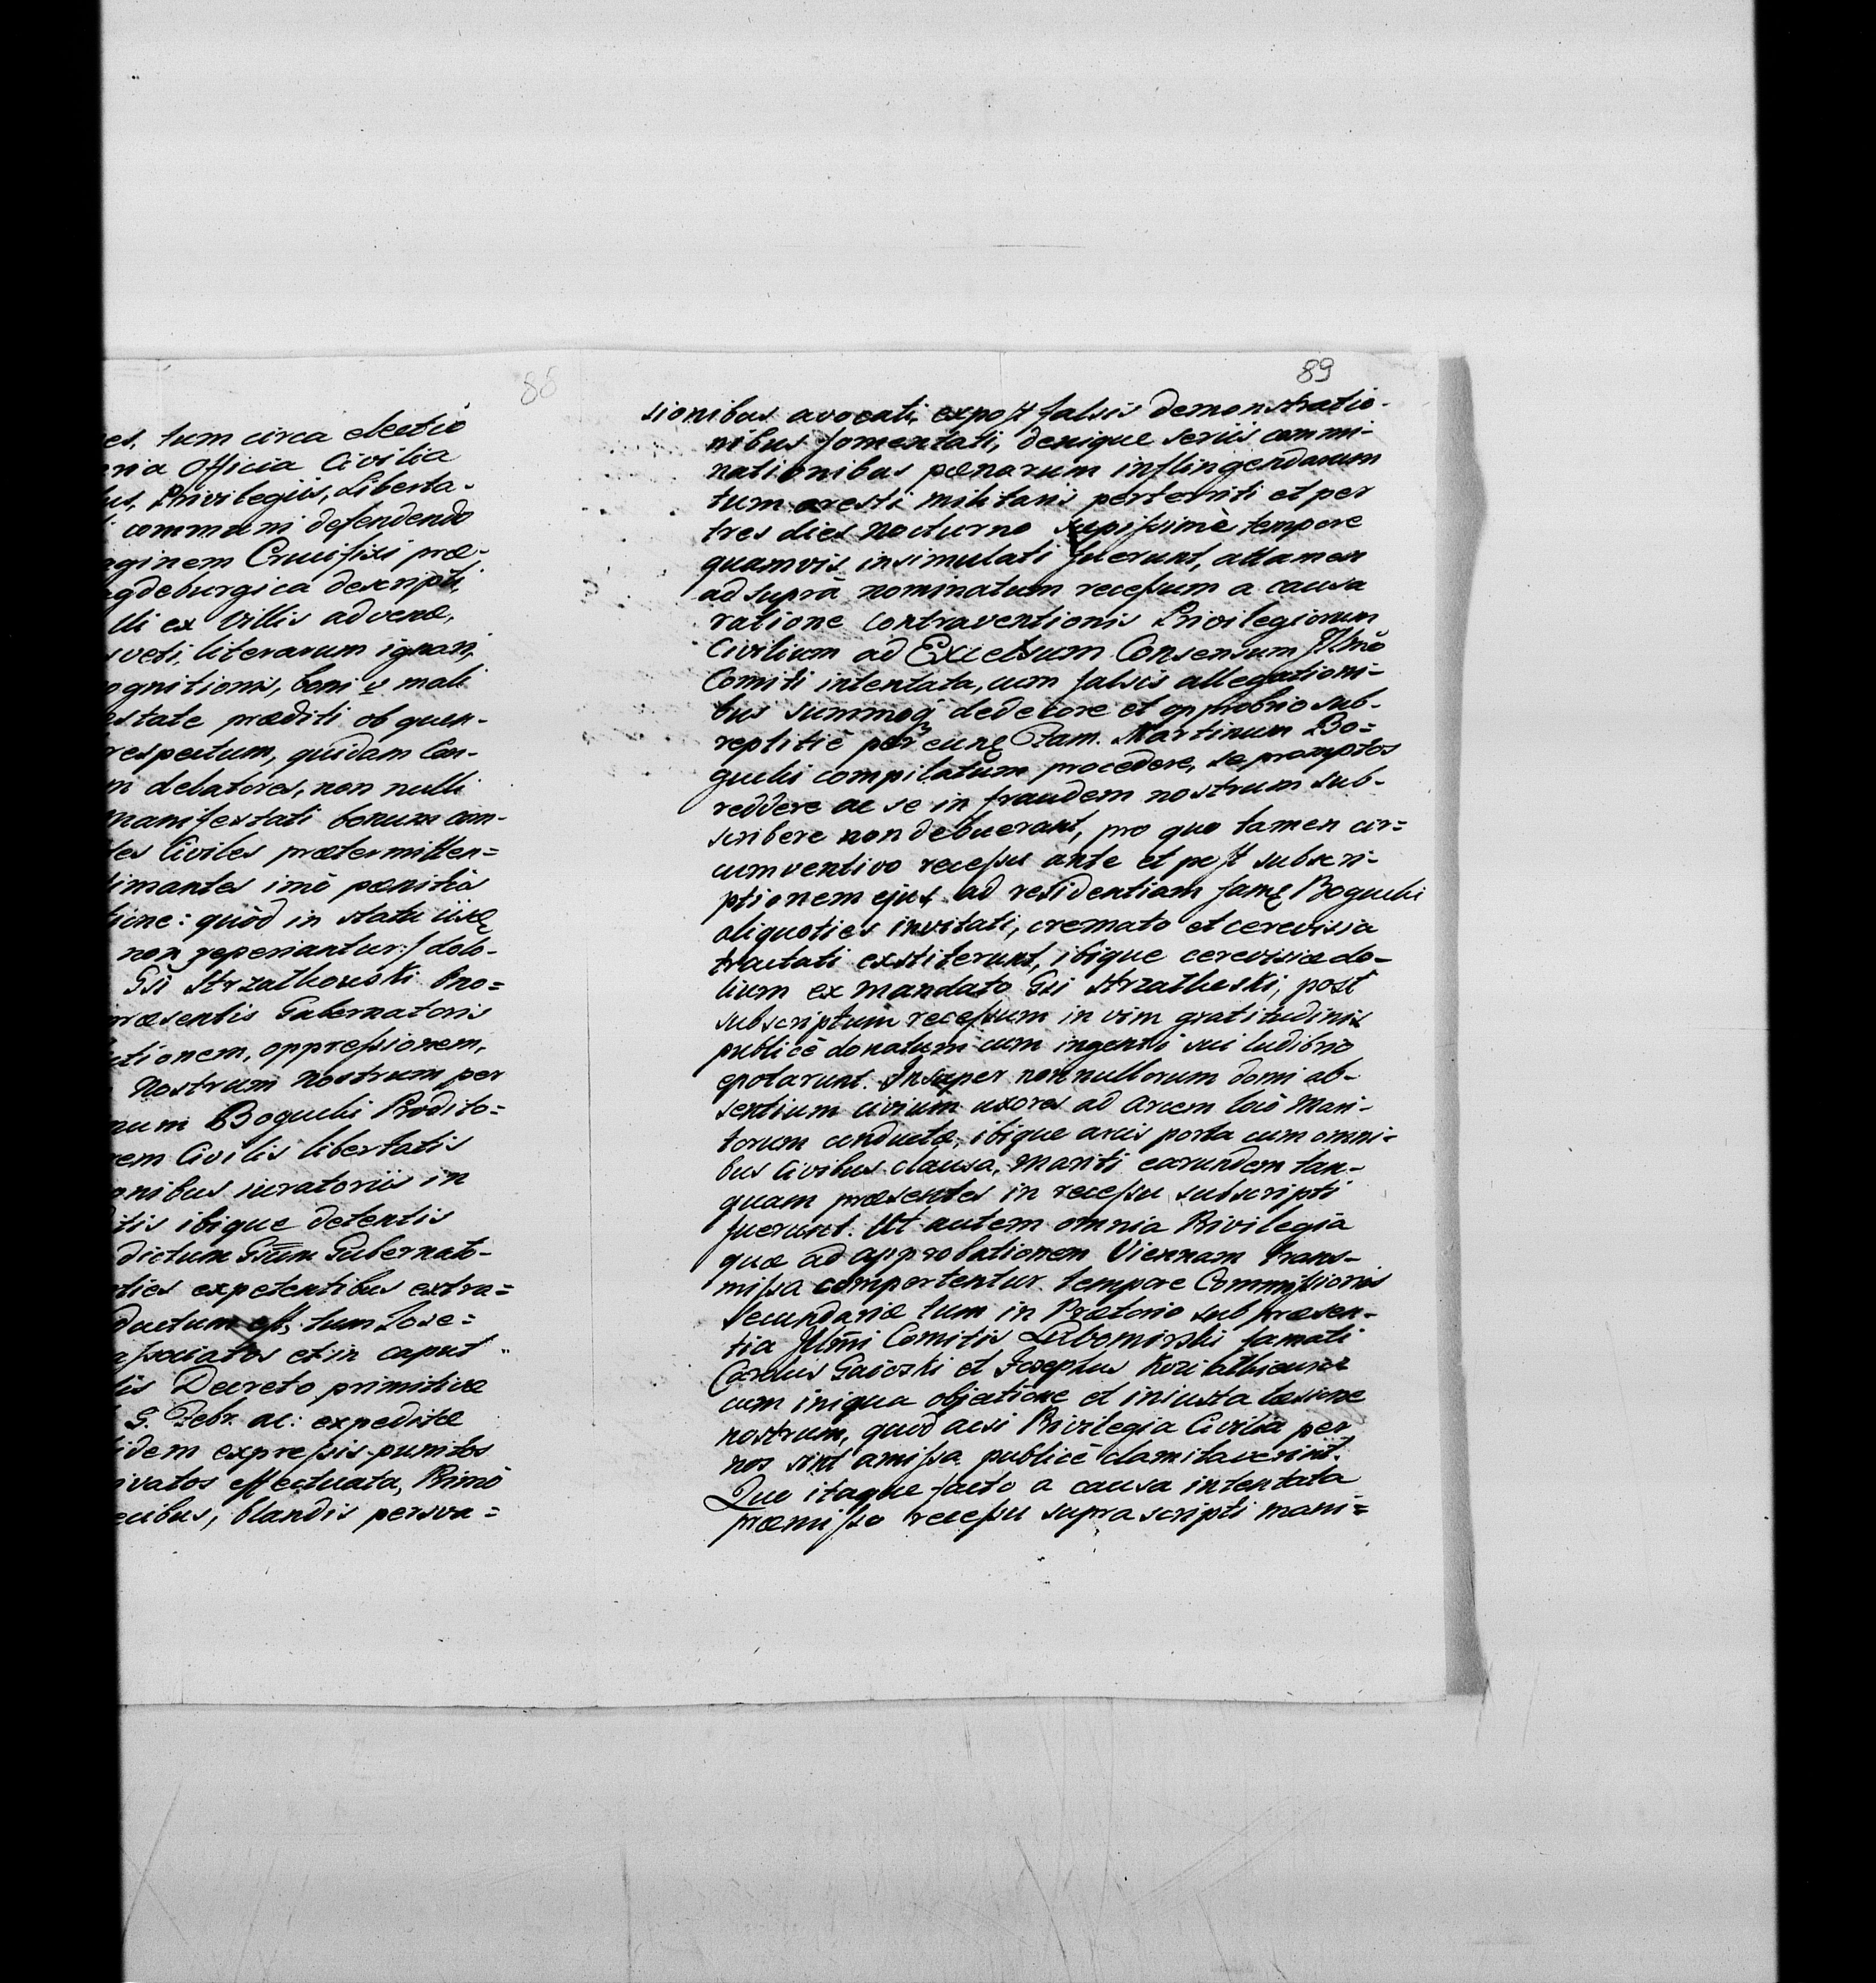 88
es, tum circa electio
nia Officia Civilia
us, Privilegiis, Liberta-
communi defendendo
aginem Crucifixi præ-
gdeburgica descripti,
lli ex Villis advenæ,
sveti, literarum ignari,
ognitionis, boni & mali
estate præditi ob quen-
respectum, quidam Con-
m delatores, non nulli
manifestati bonum com-
tes Civiles prætermitten=
timantes imò pænitùs
tione: quòd in statu
non reperiantur:/ dolo-
Gsi Strzałkowski Pro=
præsentis Gubernatoris
utionem, oppressionem,
Nostrum nostrum per
num Bogucki Prodito=
rem Civilis libertatis
onibus iuratoriis in
itis ibique detentis
dictum Gsum Gubernato-
oties expetentibus extra=
ductum est, tum Jose=
associatos et in caput
lis Decreto primitivæ
G. Febr. ac: expeditæ
idem expressis punitos
ivatos effectuata, Primò
ecibus, blandis persva=
89
sionibus avocati, expost falsis demonstratio-
nibus fomentati, denique seriis commi-
nationibus pænarum inflingendarum
tum aresti militaris perterriti et per
tres dies nocturno sæpissimè tempore
quamvis insimulati fuerunt, attamen
ad suprà nominatum recessum a causa
ratione contraventionis Privilegiorum
Civilium ad Excelsum Consensum Illmo
Comiti intentata, cum falsis allegationi-
bus summoq dedecore et opprobrio sub-
reptitiè per Fam. Martinum Bo=
gucki compilatum procedere, se promptos
reddere ac se in fraudem nostrum sub-
scribere non debuerant, pro quo tamen cir=
cumventivo recessu ante et post subscri-
ptionem ejus ad residentiam fam Bogucki
aliquoties invitati, cremato et cerevisia
tractati exstiterunt, ibique cerevisiæ do-
lium ex mandato Gsi Strzałkoski, post
subscriptum recessum in vim gratitudinis
publicè donatum cum ingenti sui ludibrio
epotarunt. Insuper nonnullorum domi ab-
sentium civium uxores ad arcem locò Mari-
torum conductæ, ibique arcis porta cum omni-
bus Civibus clausa, mariti earundem tan-
quam præsentes in recessu subscripti
fuerunt. Ut autem omnia Privilegia
quæ ad approbationem Viennam trans-
missa comportentur tempore Commissionis
Secundariæ tum in Prætorio sub præsen-
tia Illmi Comitis Lubomirski famati
Carolus et Josephus
cum iniqua objectione et iniusta læsione
nostrum, quod acsi Privilegia Civilia per
nos sint amissa publicè clamitaverint.
Quo itaque facto a causa intentata
præmisso recessu supra scripti mani=